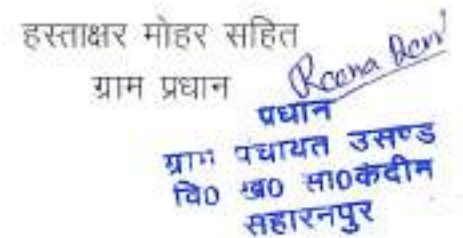 हस्ताक्षर मोहर सहित
ग्राम प्रधान
Reena Devi
प्रधान
ग्राम पंचायत उसण्ड
वि० ख० सा०कदीम
सहारनपुर